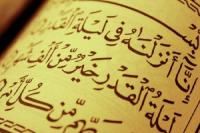 إِنَّا أَنزَلْنَٰهُ فِى لَيْلَةِ ٱلْقَدْرِ
لَيْلَةُ ٱلْقَدْرِ خَيْرٌ مِّنْ أَلْفِ
مِّن كُلِّ